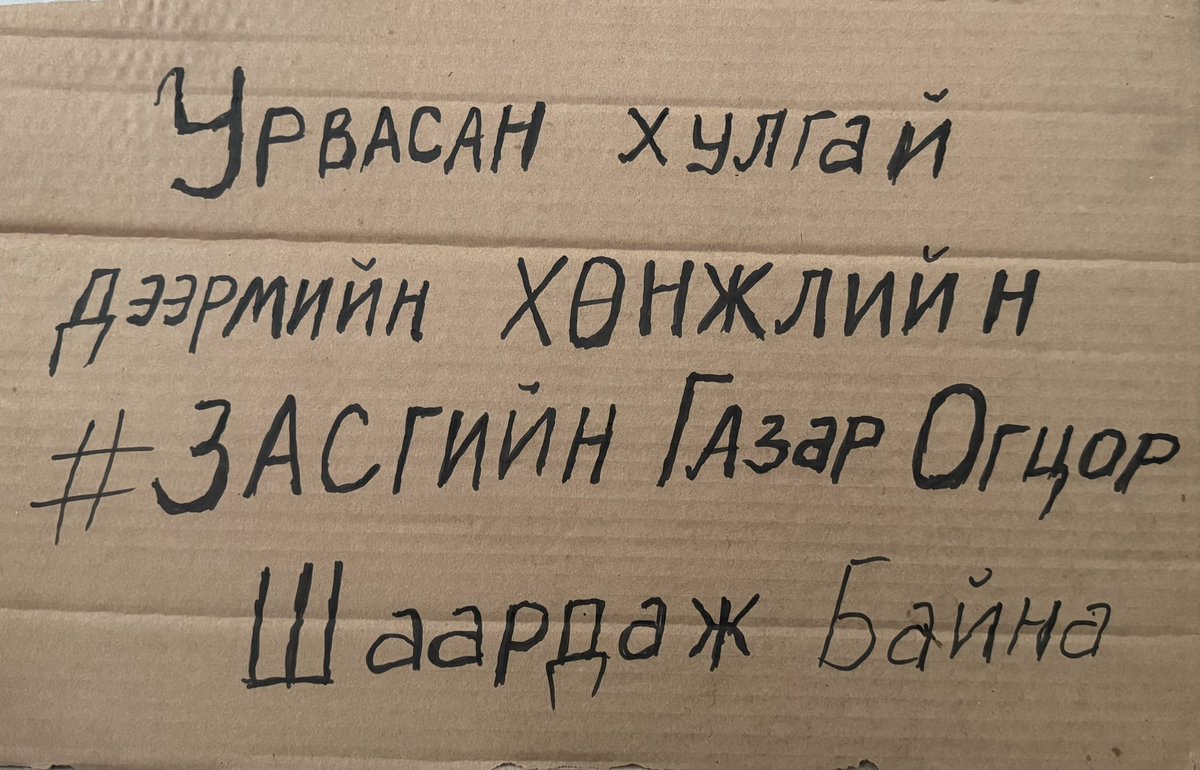 Урвасан хулгай
дээрмийн хөнжлийн
#Засгийн Газар Огцор
Шаардаж Байна